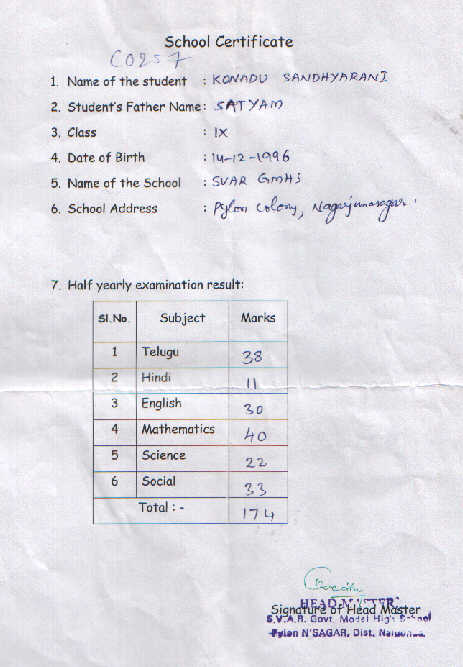 School Certificate
C0257
1. Name of the student : KONADU SANDHYARANI
2. Student's Father Name: SATYAM
3. Class : IX
4. Date of Birth : 14-12-1996
5. Name of the School : SVAR GMHS
6. School Address : Pylon Colony, Nagarjunasagar.
7. Half yearly examination result:
Sl.No. Subject Marks
1 Telugu 38
2 Hindi 11
3 English 30
4 Mathematics 40
5 Science 22
6 Social 33
Total : - 174
HEAD MASTER
Signature of Head Master
S.V.A.R. Govt. Model High School
Pylon N'SAGAR, Dist. Nalgonda